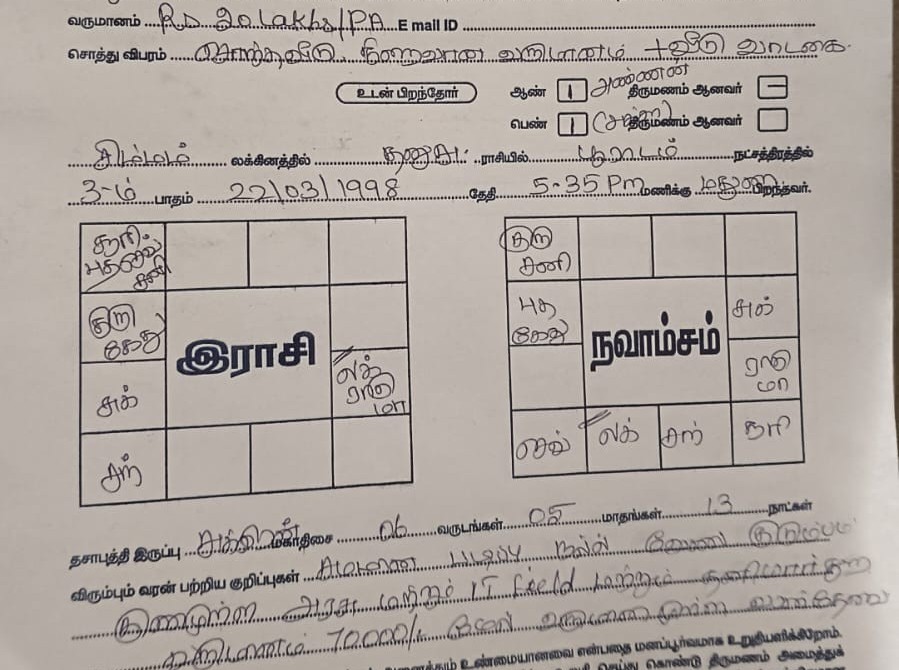 வருமானம் RD 20 Lakhs/PA E mail ID
சொத்து விபரம் சொந்தவீடு நிறைவான வருமானம் + வீடு வாடகை
உடன் பிறந்தோர் ஆண் 1 அண்ணன் திருமணம் ஆனவர் –
பெண் 1 திருமணம் ஆனவர்
சிம்மம் லக்கினத்தில் தனுசு ராசியில் பூராடம் நட்சத்திரத்தில்
3-ம் பாதம் 22/03/1998 தேதி 5-35 Pm மணிக்கு பிறந்தவர்.
சூரி
புத செவ்
சனி
குரு
கேது
சுக்
சந்
இராசி
லக்
ராகு
மா
குரு
சனி
புத
கேது
செவ்
லக்
சந்
சூரி
நவாம்சம்
சுக்
ராகு
மா
தசாபுத்தி இருப்பு சுக்கிரன் மகாதிசை 06 வருடங்கள் 05 மாதங்கள் 13 நாட்கள்
விரும்பும் வரன் பற்றிய குறிப்புகள் படிப்பு நல்ல வேலை குடும்பம்
அரசு மற்றும் IT field மற்றும்
70000/-
உண்மையானவை என்பதை மனப்பூர்வமாக உறுதியளிக்கிறோம்.
செய்து கொண்டு திருமணம் அமைத்துக்